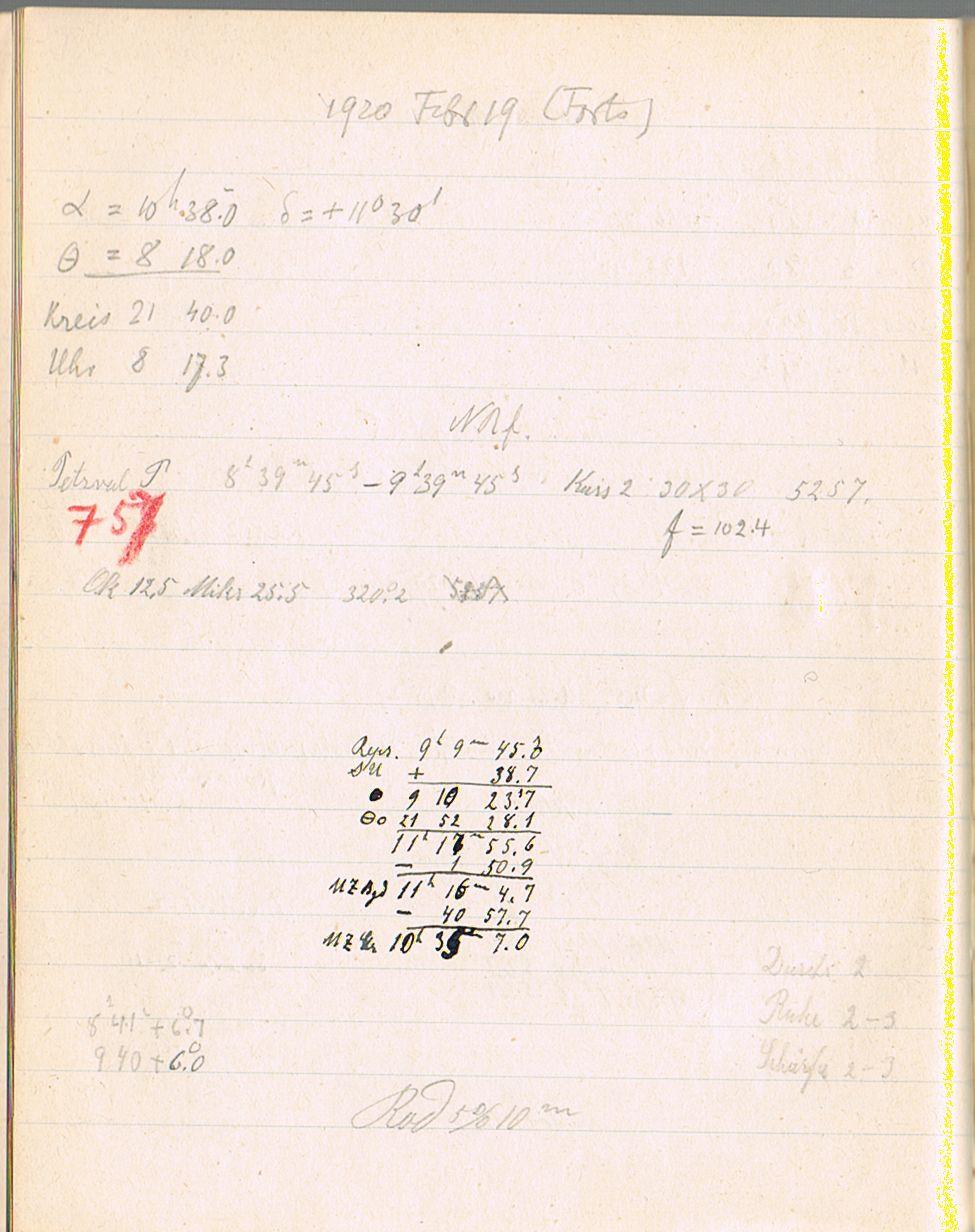 1920 Febr 19 (Forts)
α = 10ʰ 38.0 δ = +11° 30'
θ = 8 18.0
Kreis 21 40.0
Uhr 8 17.3
Petzval T 8ʰ39ᵐ45ˢ – 9ʰ39ᵐ45ˢ 30x30 5257.
757
f = 102.4
Ok 12,5 Mikr 25.5 320°.2
9ʰ 9ᵐ 45.0
+ 38.7
9 10 23.7
θ₀ 21 52 28.1
11ʰ 17ᵐ 55.6
– 1 50.9
MZ 11ʰ 16ᵐ 4.7
– 40 57.7
MZ Gr 10ʰ 35ᵐ 7.0
Durchs 2
Ruhe 2–3
8ʰ41ᵐ + 6°.7
9 40 + 6°.0
Schärfe 2–3
Rod 10ᵐ